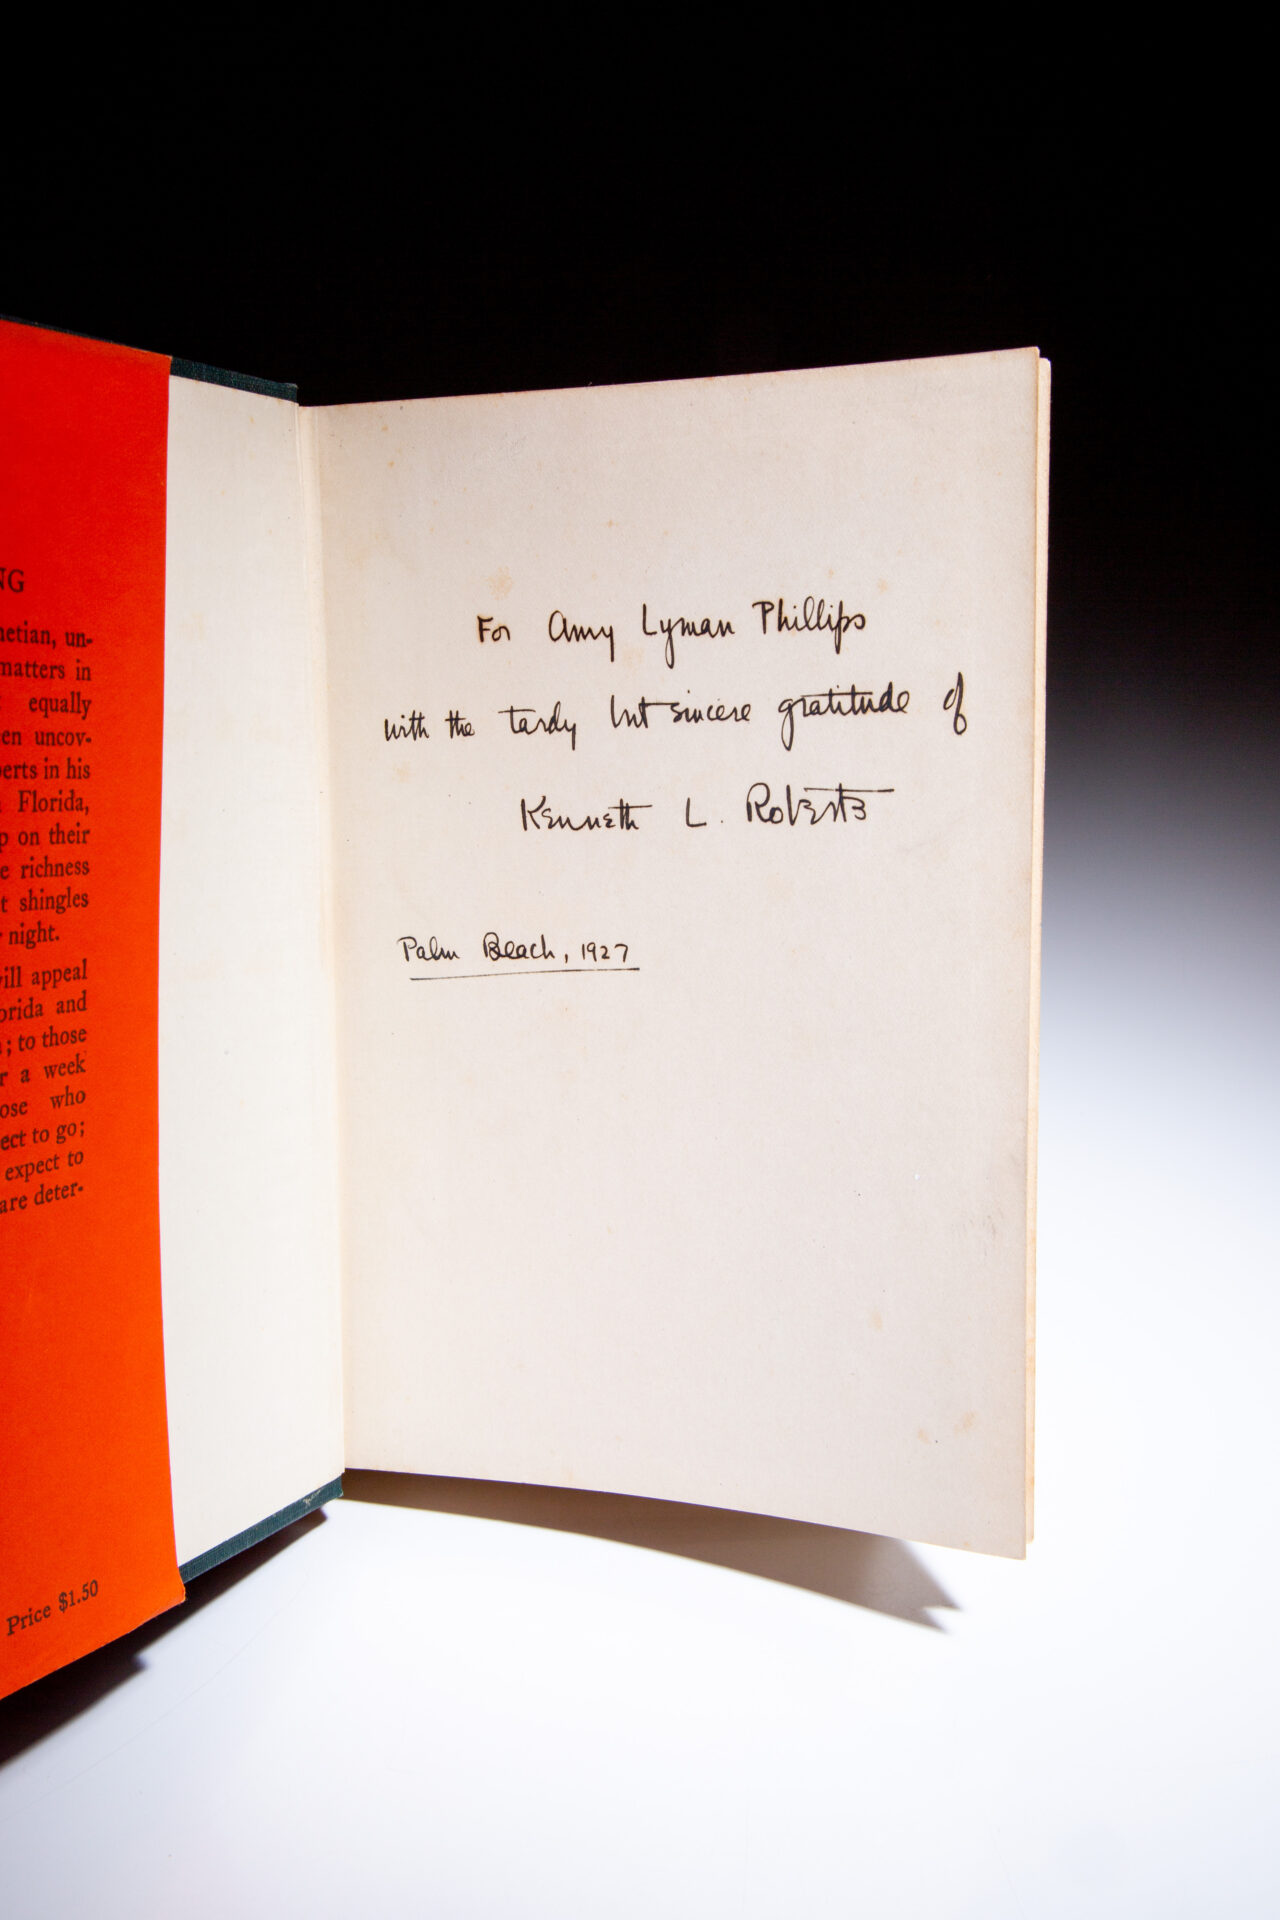 NG
netian, un-
matters in
equally
en uncov-
erts in his
Florida,
p on their
e richness
t shingles
night.
ill appeal
orida and
; to those
r a week
ose who
ect to go;
expect to
are deter-
Price $1.50
For Amy Lyman Phillips
with the tardy but sincere gratitude of
Kenneth L. Roberts
Palm Beach, 1927